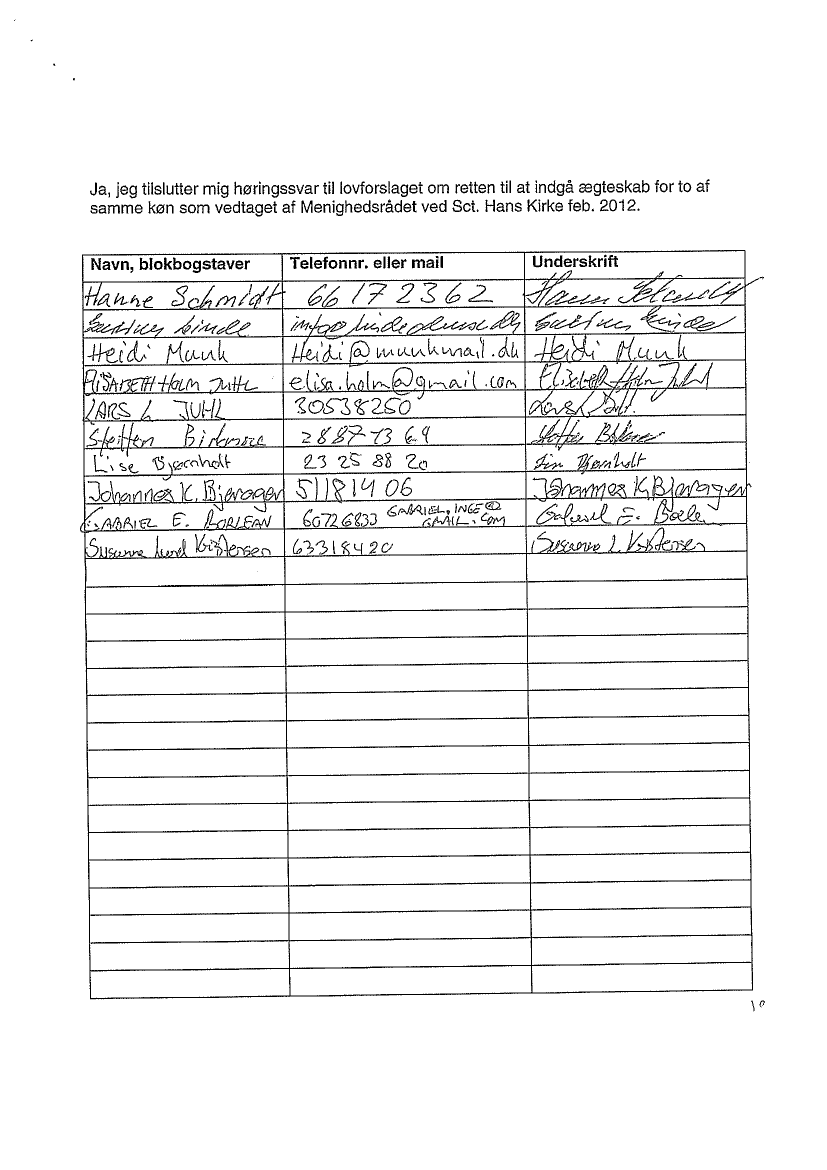 Ja, jeg tilslutter mig høringssvar til lovforslaget om retten til at indgå ægteskab for to af
samme køn som vedtaget af Menighedsrådet ved Sct. Hans Kirke feb. 2012.
Navn, blokbogstaver Telefonnr. eller mail Underskrift
Hanne Schmidt 66 17 23 62 Hanne Schmidt
Heidi Munk Heidi@munkmail.dk Heidi Munk
ELISABETH HOLM JUHL elisa.holm@gmail.com Elisabeth Holm Juhl
LARS L JUHL 30538250
Steffen 28871369
Lise Bjørnholt 23 25 88 20 Bjørnholt
Johannes K. Bjerager 51181406 Johannes K. Bjerager
GABRIEL E. 60726833 GABRIEL.INGE@
GMAIL.COM Gabriel E.
Susanne Lund Kristensen 63318420 Susanne L. Kristensen
10